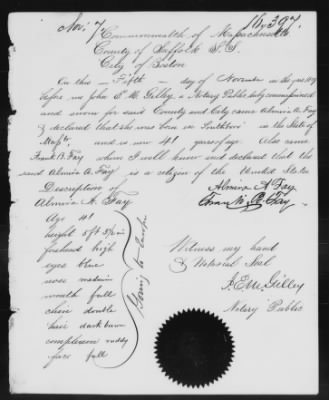 Nov. 7
16,397.
Commonwealth of Massachusetts
County of Suffolk S.S.
City of Boston
On this - Fifth - day of November in the year
before me John E. M. Gilley, a Notary Public duly commissioned
and sworn for said County and City came Almira A. Fay
& declared that she was born in Southboro in the State of
Mass. and is now 41 years of age. Also came
Frank B. Fay whom I well know and declared that the
said Almira A. Fay is a citizen of the United States
Description of
Almira A. Fay
Almira A Fay
Frank B. Fay
Age 41
height 5 ft
forehead high
eyes blue
nose medium
mouth full
chin double
hair dark brown
complexion ruddy
face full
Going to Europe
Witness my hand
& Notarial Seal
J.E.M. Gilley
Notary Public